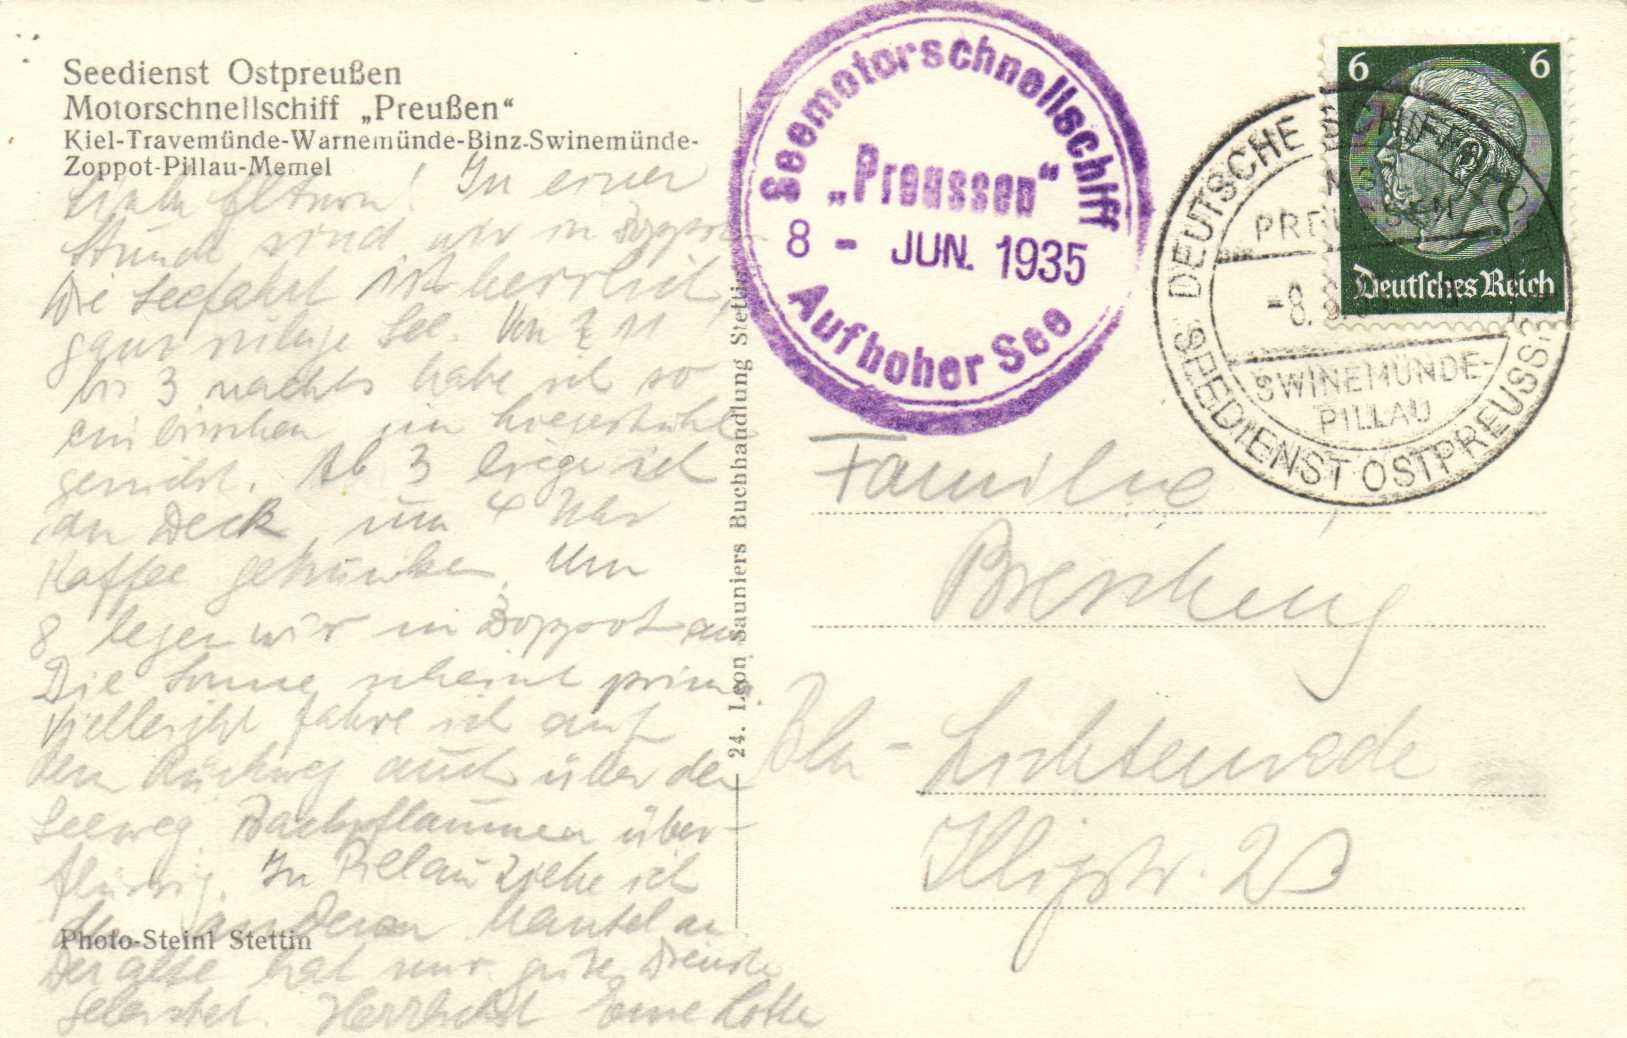 Seedienst Ostpreußen
Motorschnellschiff „Preußen“
Kiel-Travemünde-Warnemünde-Binz-Swinemünde-
Zoppot-Pillau-Memel
Seemotorschnellschiff
„Preussen“
8 - JUN. 1935
Auf hoher See
6 6
Deutsches Reich
DEUTSCHE SCHIFFSPOST
PREUSSEN
-8.
SWINEMÜNDE-
PILLAU
SEEDIENST OSTPREUSSEN
Liebe Eltern! In einer
Stunde sind wir in Zoppot.
Die Seefahrt ist herrlich,
ganz ruhige See. Von 11
bis 3 nachts habe ich so
ein bisschen im Liegestuhl
geruht. Ab 3 liege ich
an Deck, um 4 Uhr
Kaffee getrunken. Um
8 legen wir in Zoppot an
Die Sonne scheint prima.
Vielleicht fahre ich auf
dem Rückweg auch über den
Seeweg. Backpflaumen über-
flüssig. In Pillau ziehe ich
den anderen Mantel an
Der alte hat mir gute Dienste
geleistet. Herzlichst Eure Lotte
Photo-Steinl Stettin
24. Leon Sauniers Buchhandlung Stettin
Familie
Bln-Lichtenrade